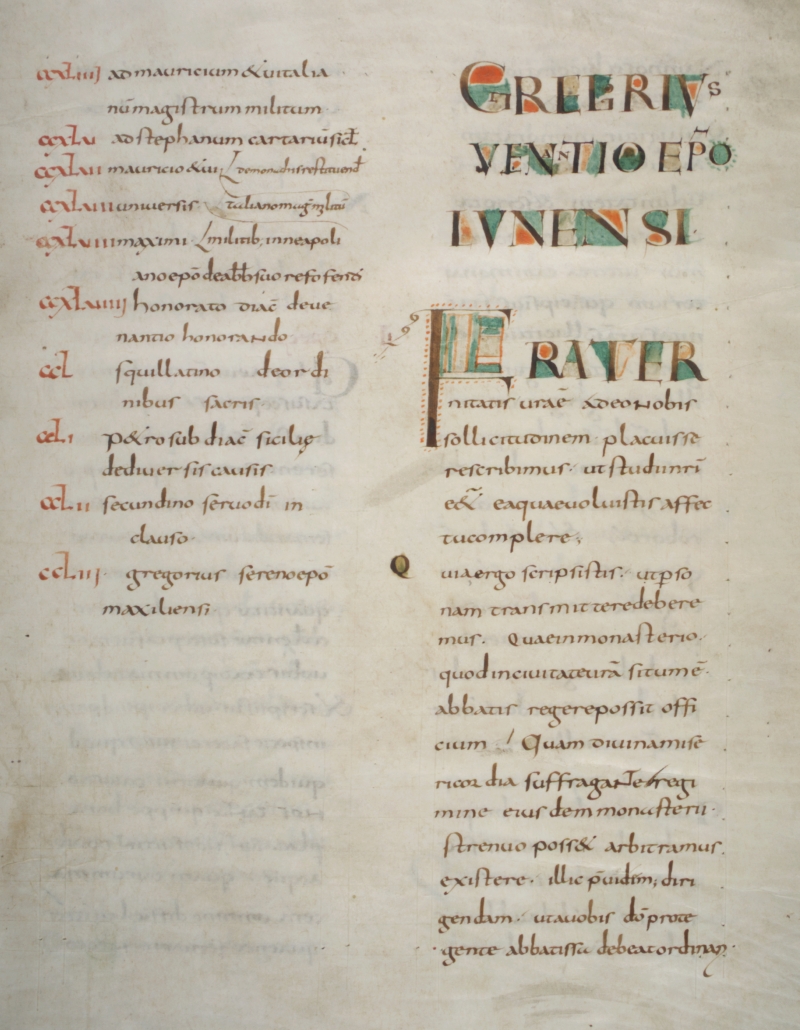 ccxliiij ad mauricium & uitalia
nū magistrum militum
ccxlu ad stephanum cartariū sicł
ccxlui mauricio & uit
ccxluii uniuersis militib; in neapoli
ccxluiii maximi
ano epō
ccxluiiij honorato diac̄ de ue
nantio honorando
ccl squillatino de ordi
nibus sacris
ccli p&ro subdiac̄ sicilię
de diuersis causis
cclii secundino seruo dī in
clauso·
ccliij· gregorius sereno epō
maxiliensi
GREGORIUS
VENANTIO EP̄O
LUNENSI
FRATER
nitatis uraē adeo nobis
sollicitudinem placuisse
rescribimus· ut studii nrī
e& eaquae uoluistis affec
tu complere;
Quia ergo scripsistis· ut pso
nam transmittere debere
mus. Quae in monasterio·
quod in ciuitate urā situm ē·
abbatis regere possit offi
cium / Quam diuina misē
ricordia suffragante regi
mine eiusdem monasterii·
strenuo poss& arbitramus.
existere· illic p̄uidim; diri
gendam· ut a uobis dō prote
gente abbatissa debeat ordinari·